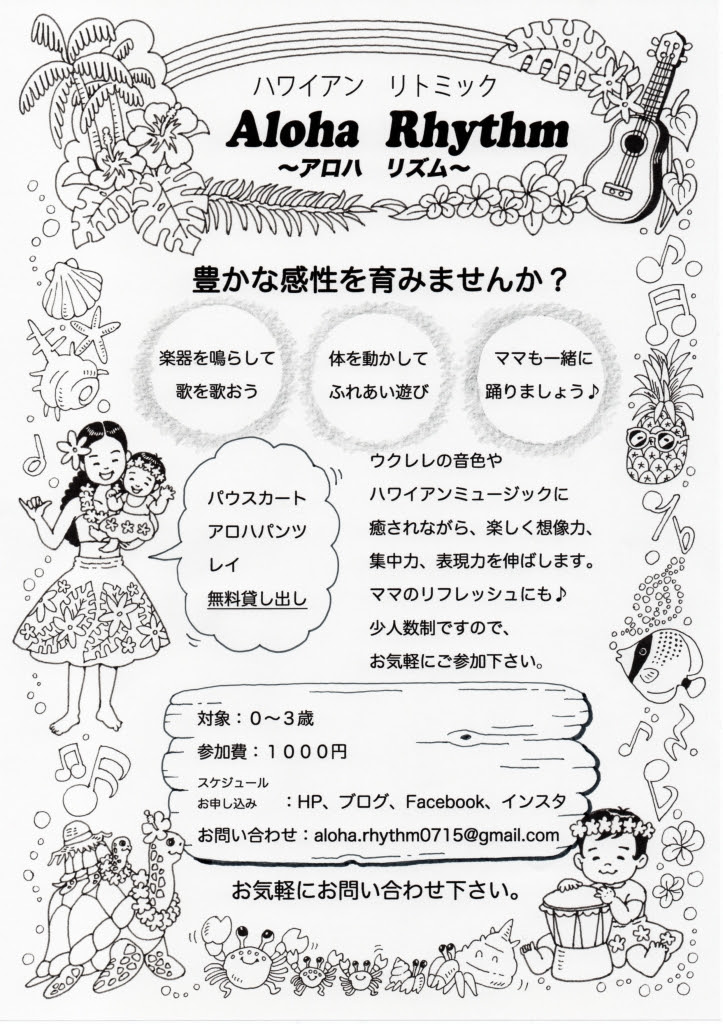 ハワイアン　リトミック
Aloha Rhythm
～アロハ　リズム～
豊かな感性を育みませんか？
楽器を鳴らして
歌を歌おう
体を動かして
ふれあい遊び
ママも一緒に
踊りましょう♪
パウスカート
アロハパンツ
レイ
無料貸し出し
ウクレレの音色や
ハワイアンミュージックに
癒されながら、楽しく想像力、
集中力、表現力を伸ばします。
ママのリフレッシュにも♪
少人数制ですので、
お気軽にご参加下さい。
対象：０～３歳
参加費：１０００円
スケジュール
お申し込み　：HP、ブログ、Facebook、インスタ
お問い合わせ：aloha.rhythm0715@gmail.com
お気軽にお問い合わせ下さい。